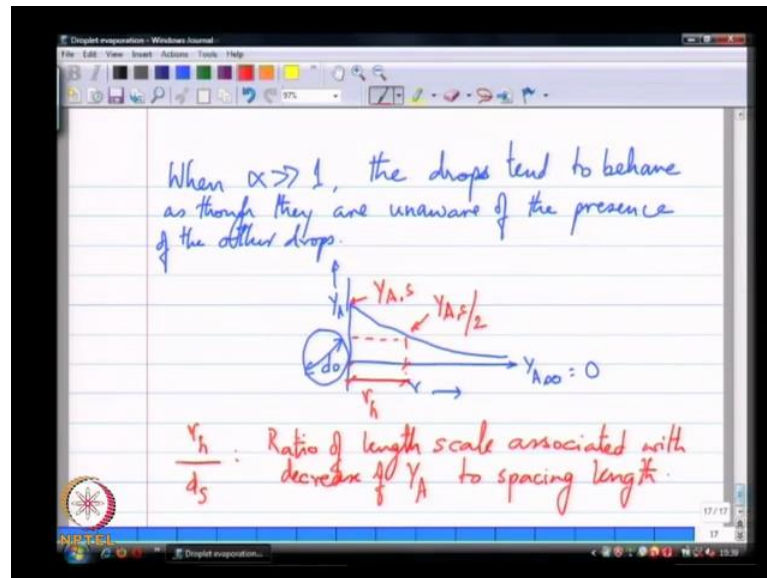 Droplet evaporation - Windows Journal
File Edit View Insert Actions Tools Help
97%
When α >> 1, the drops tend to behave
as though they are unaware of the presence
of the other drops.
Y_A
Y_A,s
Y_A,s/2
d_0
r →
Y_A∞ = 0
r_h
r_h/d_s : Ratio of length scale associated with
decrease of Y_A to spacing length.
17/17
17
NPTEL
Droplet evaporation...
10:39